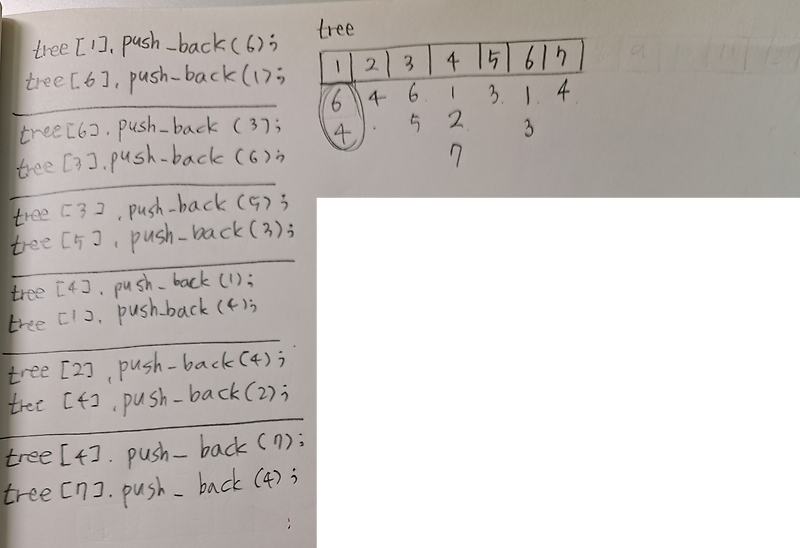 tree [1]. push_back(6);
tree [6]. push-back(1);
tree[6]. push-back (3);
tree [3].push-back (6);
tree [3]. push-back (5);
tree [5]. push-back(3);
tree [4]. push_back(1);
tree [1]. push_back(4);
tree [2]. push-back(4);
tree [4]. push-back(2);
tree [4]. push_ back (7);
tree [7]. push_ back (4);
;
tree
1 2 3 4 5 6 7
6 4 6 1 3 1 4
4 5 2 3
7